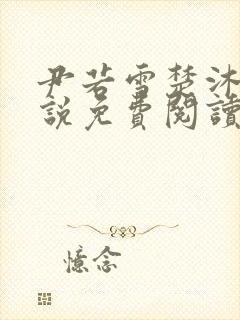 尹若雪楚沐
說免費閱讀
憶念